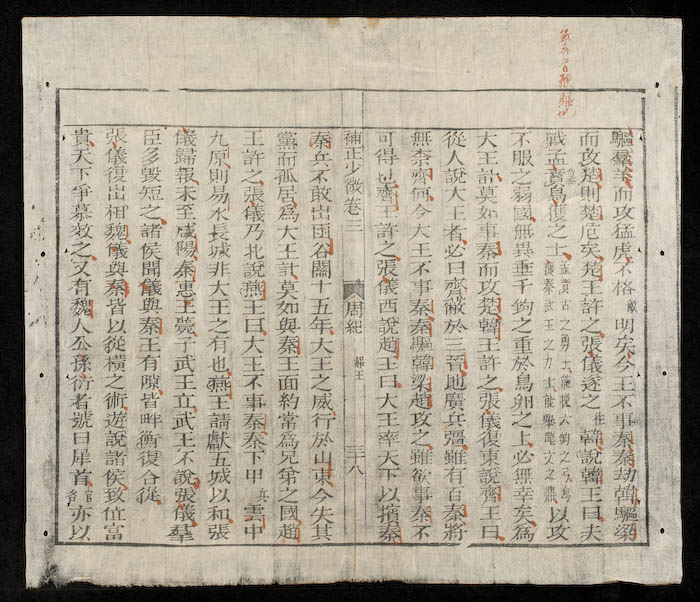 驅羣羊而攻猛虎不格敵明矣今王不事秦秦劫韓驅梁
而攻楚則楚危矣楚王許之張儀遂之往韓說韓王曰夫
戰孟賁烏獲之士孟賁古之勇士能投六鈞之弓烏獲秦武王之力士能舉龍文之鼎以攻
不服之弱國無異垂千鈞之重於鳥卵之上必無幸矣爲
大王計莫如事秦而攻楚韓王許之張儀復東說齊王曰
從人說大王者必曰齊蔽於三晉地廣兵彊雖有百秦將
無柰齊何今大王不事秦秦驅韓梁趙攻之雖欲事秦不
可得也齊王許之張儀西說趙王曰大王率天下以擯秦
補正少微卷三
周紀
赧王
三十八
秦兵不敢出函谷關十五年大王之威行於山東今失其
黨而孤居爲大王計莫如與秦王面約常爲兄弟之國趙
王許之張儀乃北說燕王曰大王不事秦秦下甲兵雲中
九原則易水長城非大王之有也燕王請獻五城以和張
儀歸報未至咸陽秦惠王薨子武王立武王不說張儀羣
臣多毀短之諸侯聞儀與秦王有隙皆畔衡復合從
張儀復出相魏儀與秦皆以從橫之術遊說諸侯致位富
貴天下爭慕效之又有魏人公孫衍者號曰犀首官名亦以